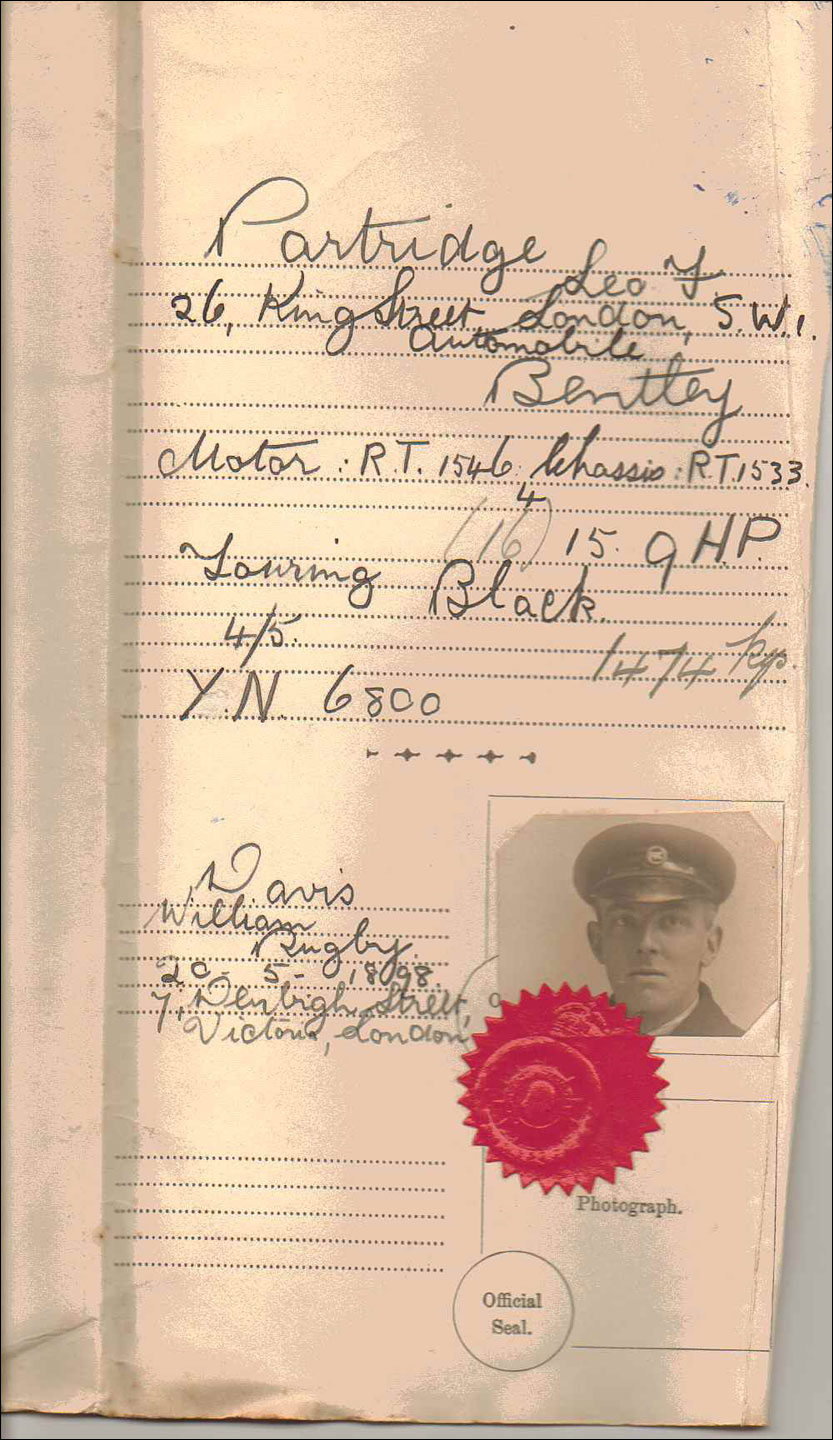 Partridge
Leo F.
26, King Street, London, S.W.1.
Automobile
Bentley
Motor: R.T. 1546. Chassis: R.T. 1533.
4
(16) 15.9 H.P.
Touring Black.
4/5.
1474 kgs.
Y.N. 6800
Davis
William
Rugby.
20 - 5 - 1898.
7, Denbigh Street,
Victoria, London
Photograph.
Official
Seal.